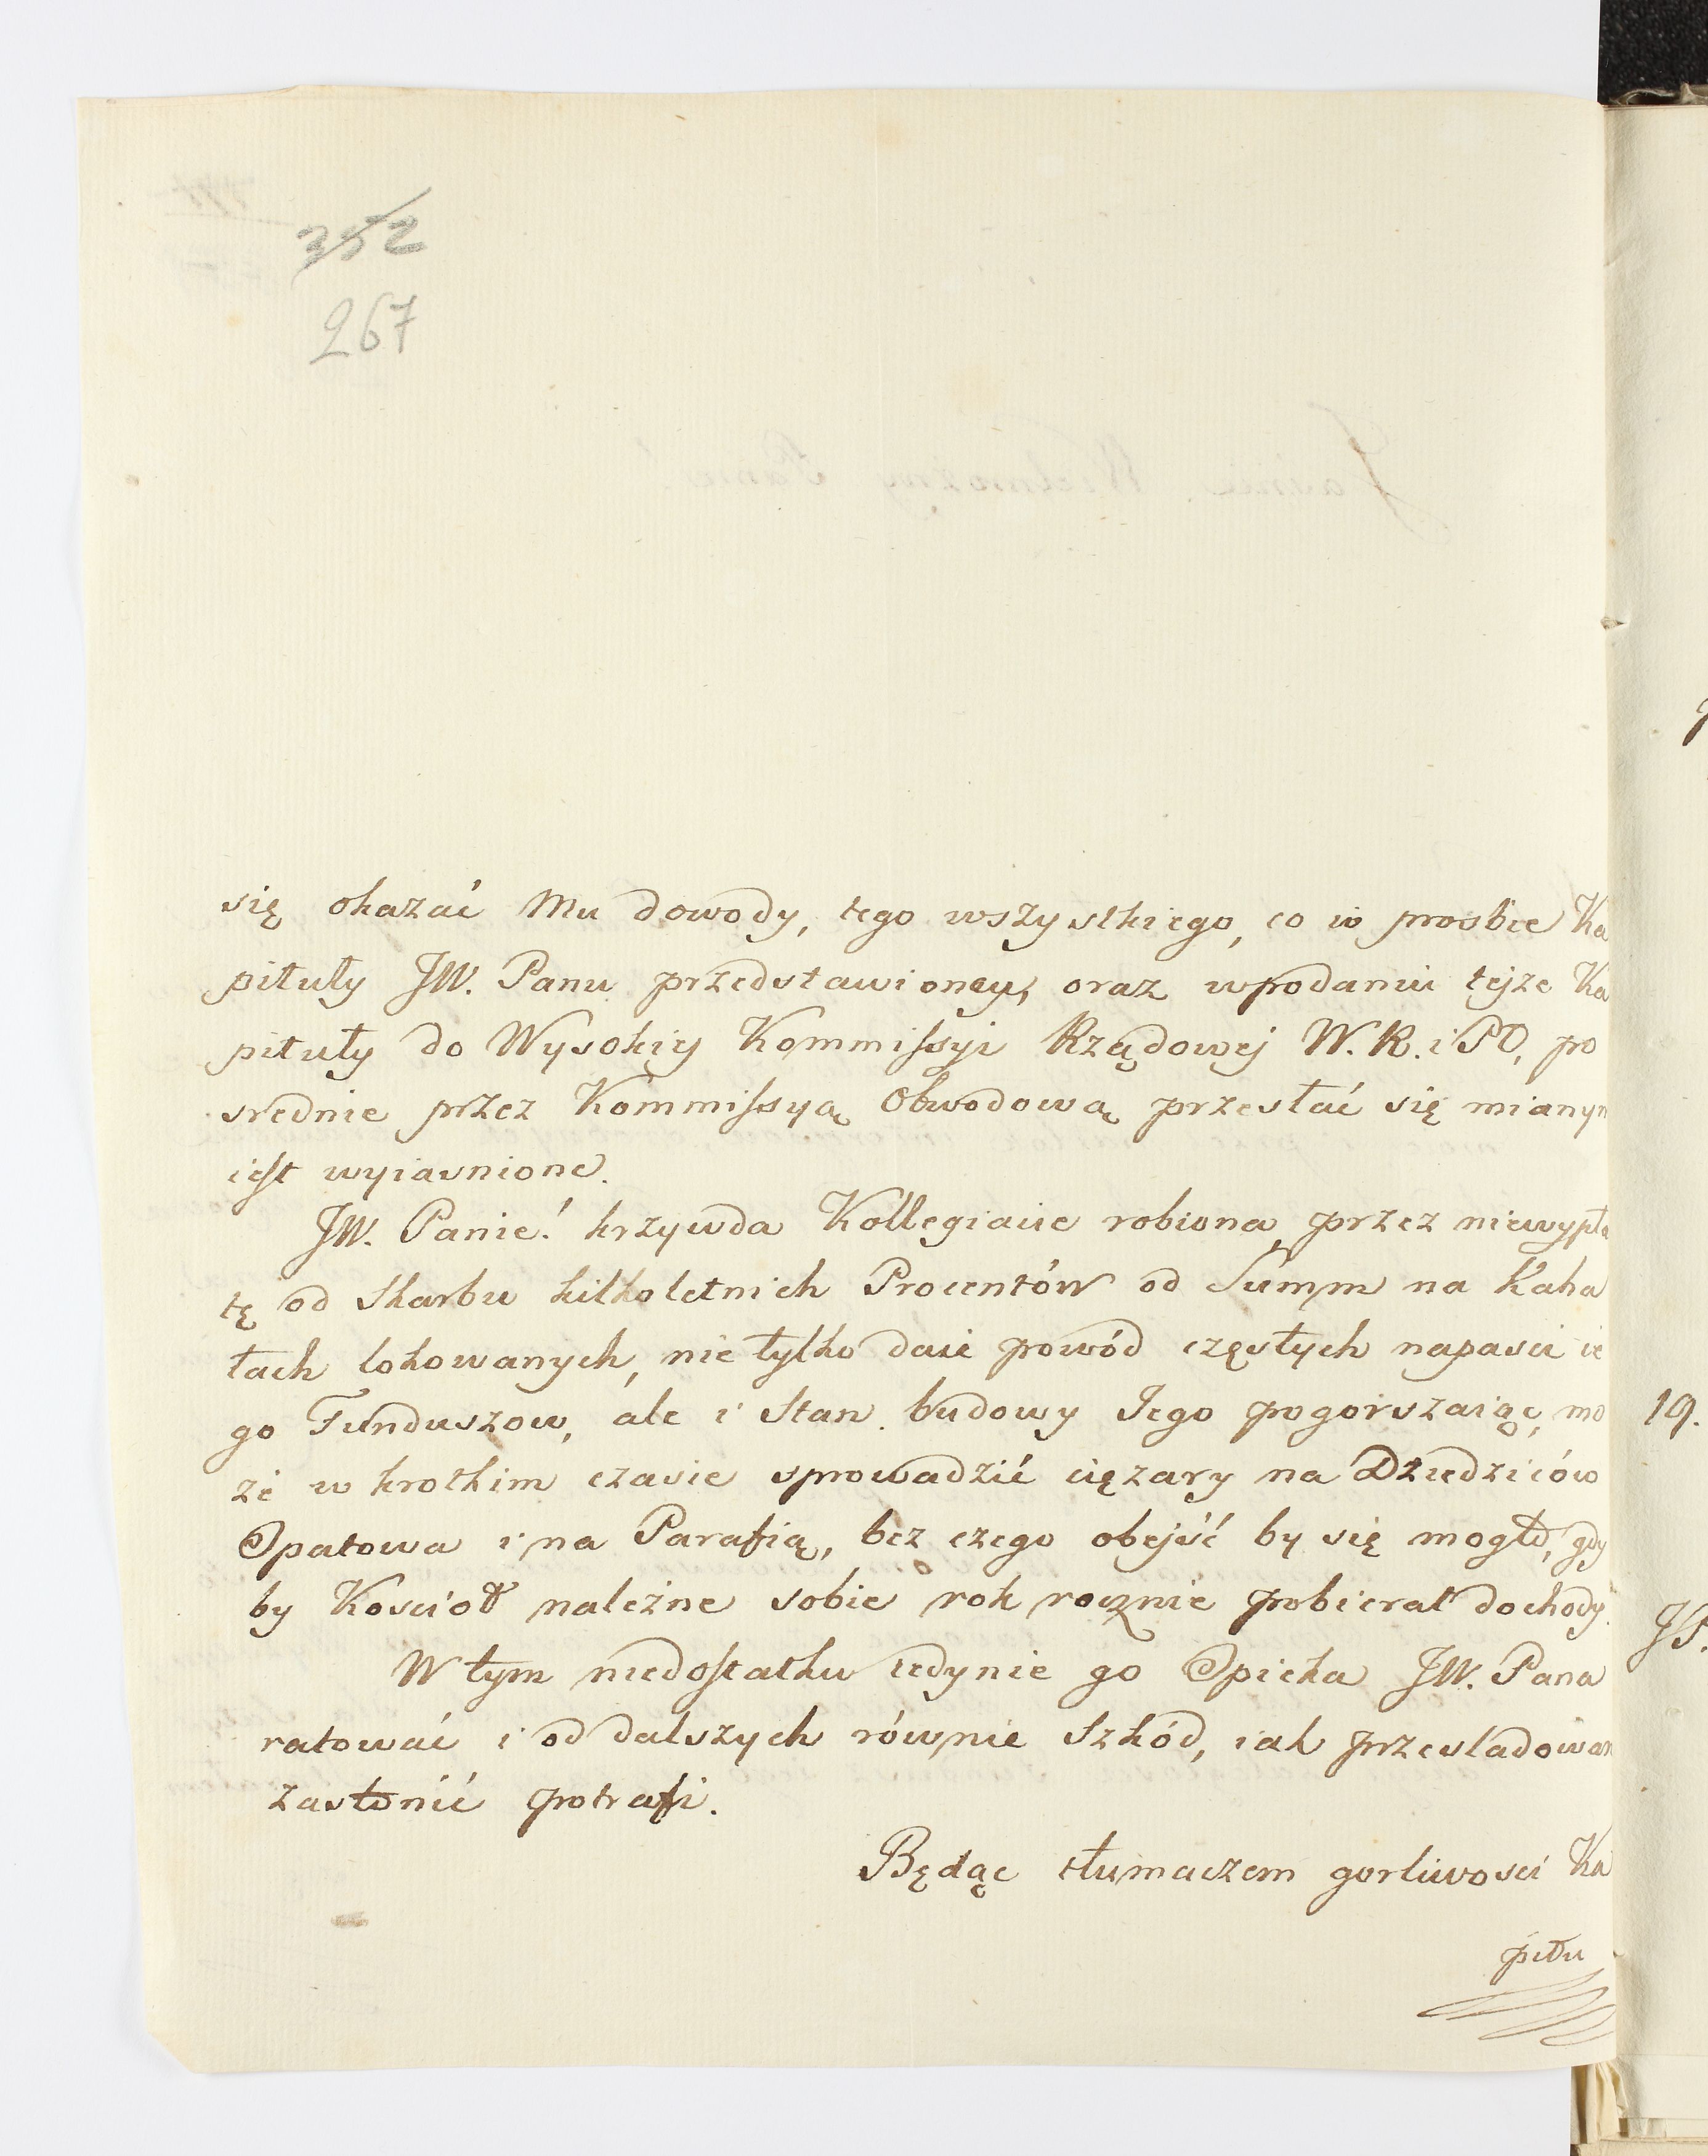 352
267
się okazać Mu dowody, tego wszystkiego, co w prosbie Ka
pituły JW. Panu przedstawioney, oraz w podaniu tejze Ka
pituły do Wysokiey Kommissyi Rządowej W. R. i P O, po
srednie przez Kommissyą Obwodową przesłać się mianym
iest wyiasnione.
JW. Panie! krzywda Kollegiacie robiona przez niewypła
tę od Skarbu kilkoletnich Procentów od Summ na Kaha
łach lokowanych, nie tylko daie powód częstych napasci ie
go Funduszow, ale i Stan budowy Jego pogorszaiąc, mo
że w krotkim czasie sprowadzić ciężary na Dziedziców
Opatowa i na Parafią, bez czego obejść by się mogło, gdy
by Kosciół należne sobie rok rocznie pobierał dochody.
W tym niedostatku iedynie go Opieka JW. Pana
ratować i od dalszych równie Szkód, iak przesladowan
zasłonić potrafi.
Będąc tłumaczem gorliwosci Ka
pitu
19.